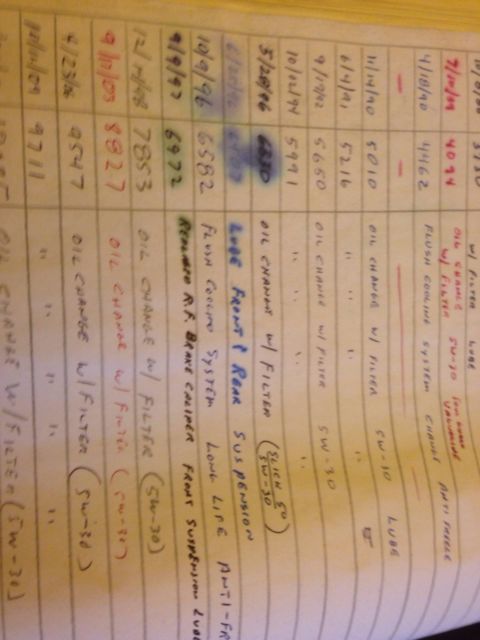 W/ FILTER LUBE
7/10/89 4094 OIL CHANGE W/ FILTER 5W-30 VALVOLINE
4/18/90 4462 FLUSH COOLING SYSTEM CHANGE ANTI FREEZE
— — —
11/14/90 5010 OIL CHANGE W/ FILTER 5W-30 LUBE
6/4/91 5216 " " " "
9/17/92 5650 OIL CHANGE W/FILTER 5W-30
10/12/94 5991 " " "
5/28/96 6380 OIL CHANGE W/ FILTER (SLICK 50 5W-30)
LUBE FRONT & REAR SUSPENSION
10/9/96 6582 FLUSH COOLING SYSTEM LONG LIFE ANTI-FR
9/9/97 6972 R.F. BRAKE CALIPER FRONT SUSPENSION LUBE
7853 OIL CHANGE W/ FILTER (5W-30)
9/12/03 8827 OIL CHANGE W/ FILTER (5W-30)
9547 OIL CHANGE W/FILTER (5W-30)
9711 " " "
OIL CHANGE W/FILTER (5W-30)